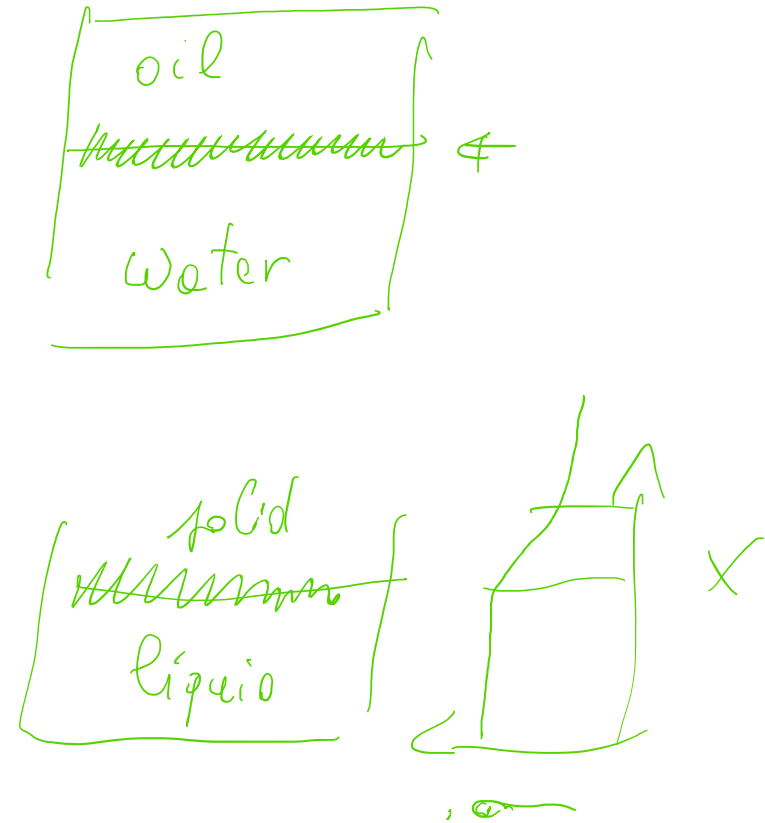 oil
water
solid
liquid
x